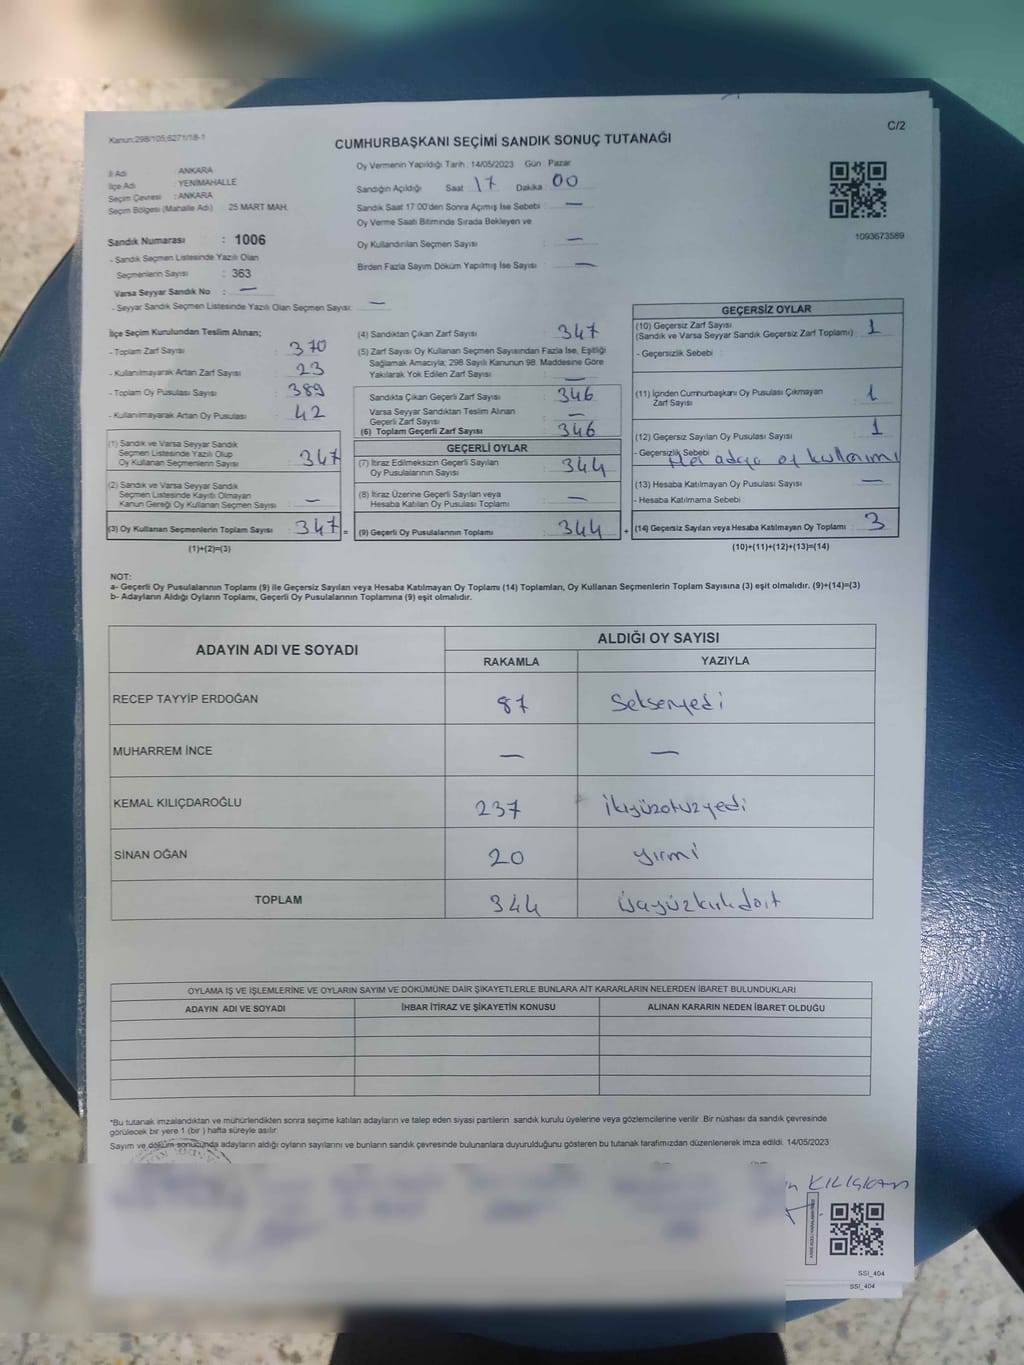 Kanun:298/105;6271/18-1
C/2
CUMHURBAŞKANI SEÇİMİ SANDIK SONUÇ TUTANAĞI
İl Adı : ANKARA
İlçe Adı : YENİMAHALLE
Seçim Çevresi : ANKARA
Seçim Bölgesi (Mahalle Adı) 25 MART MAH.
Sandık Numarası : 1006
- Sandık Seçmen Listesinde Yazılı Olan
Seçmenlerin Sayısı : 363
Varsa Seyyar Sandık No : —
- Seyyar Sandık Seçmen Listesinde Yazılı Olan Seçmen Sayısı: —
Oy Vermenin Yapıldığı Tarih : 14/05/2023 Gün : Pazar
Sandığın Açıldığı Saat 17 Dakika 00
Sandık Saat 17:00'den Sonra Açımış İse Sebebi : —
Oy Verme Saati Bitiminde Sırada Bekleyen ve
Oy Kullandırılan Seçmen Sayısı : —
Birden Fazla Sayım Döküm Yapılmış İse Sayısı : —
1093673589
İlçe Seçim Kurulundan Teslim Alınan;
- Toplam Zarf Sayısı : 370
- Kullanılmayarak Artan Zarf Sayısı : 23
- Toplam Oy Pusulası Sayısı : 389
- Kullanılmayarak Artan Oy Pusulası : 42
(1) Sandık ve Varsa Seyyar Sandık
Seçmen Listesinde Yazılı Olup
Oy Kullanan Seçmenlerin Sayısı : 347
(2) Sandık ve Varsa Seyyar Sandık
Seçmen Listesinde Kayıtlı Olmayan
Kanun Gereği Oy Kullanan Seçmen Sayısı : —
(3) Oy Kullanan Seçmenlerin Toplam Sayısı : 347 =
(1)+(2)=(3)
(4) Sandıktan Çıkan Zarf Sayısı : 347
(5) Zarf Sayısı Oy Kullanan Seçmen Sayısından Fazla İse, Eşitliği
Sağlamak Amacıyla; 298 Sayılı Kanunun 98. Maddesine Göre
Yakılarak Yok Edilen Zarf Sayısı : —
Sandıkta Çıkan Geçerli Zarf Sayısı : 346
Varsa Seyyar Sandıktan Teslim Alınan
Geçerli Zarf Sayısı : —
(6) Toplam Geçerli Zarf Sayısı : 346
GEÇERLİ OYLAR
(7) İtiraz Edilmeksizin Geçerli Sayılan
Oy Pusulalarının Sayısı : 344
(8) İtiraz Üzerine Geçerli Sayılan veya
Hesaba Katılan Oy Pusulası Toplamı : —
(9) Geçerli Oy Pusulalarının Toplamı : 344 +
GEÇERSİZ OYLAR
(10) Geçersiz Zarf Sayısı
(Sandık ve Varsa Seyyar Sandık Geçersiz Zarf Toplamı) : 1
- Geçersizlik Sebebi :
(11) İçinden Cumhurbaşkanı Oy Pusulası Çıkmayan
Zarf Sayısı : 1
(12) Geçersiz Sayılan Oy Pusulası Sayısı : 1
- Geçersizlik Sebebi Her adaya oy kullanımı
(13) Hesaba Katılmayan Oy Pusulası Sayısı : —
- Hesaba Katılmama Sebebi :
(14) Geçersiz Sayılan veya Hesaba Katılmayan Oy Toplamı : 3
(10)+(11)+(12)+(13)=(14)
NOT:
a- Geçerli Oy Pusulalarının Toplamı (9) ile Geçersiz Sayılan veya Hesaba Katılmayan Oy Toplamı (14) Toplamları, Oy Kullanan Seçmenlerin Toplam Sayısına (3) eşit olmalıdır. (9)+(14)=(3)
b- Adayların Aldığı Oyların Toplamı, Geçerli Oy Pusulalarının Toplamına (9) eşit olmalıdır.
ADAYIN ADI VE SOYADI
ALDIĞI OY SAYISI
RAKAMLA YAZIYLA
RECEP TAYYİP ERDOĞAN 87 Seksenyedi
MUHARREM İNCE — —
KEMAL KILIÇDAROĞLU 237 ikiyüzotuzyedi
SİNAN OĞAN 20 yirmi
TOPLAM 344 üçyüzkırkdört
OYLAMA İŞ VE İŞLEMLERİNE VE OYLARIN SAYIM VE DÖKÜMÜNE DAİR ŞİKAYETLERLE BUNLARA AİT KARARLARIN NELERDEN İBARET BULUNDUKLARI
ADAYIN ADI VE SOYADI İHBAR İTİRAZ VE ŞİKAYETİN KONUSU ALINAN KARARIN NEDEN İBARET OLDUĞU
*Bu tutanak imzalandıktan ve mühürlendikten sonra seçime katılan adayların ve talep eden siyasi partilerin sandık kurulu üyelerine veya gözlemcilerine verilir. Bir nüshası da sandık çevresinde
görülecek bir yere 1 (bir ) hafta süreyle asılır.
Sayım ve döküm sonucunda adayların aldığı oyların sayılarını ve bunların sandık çevresinde bulunanlara duyurulduğunu gösteren bu tutanak tarafımızdan düzenlenerek imza edildi. 14/05/2023
SSI_404
SSI_404